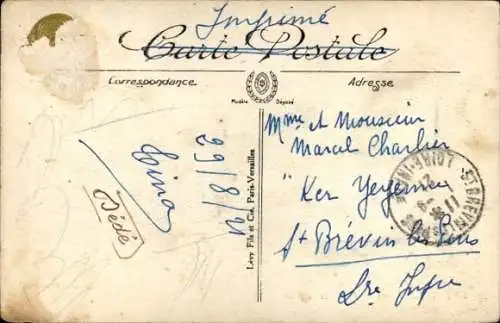 Imprimé
Carte Postale
Correspondance
Adresse
Modèle Déposé
Mme et Monsieur
Marcel Charlier
"Ker
St Brévin les Pins
Lre Infre
Lina
29/8/21
Dédé
Lévy Fils et Cie, Paris-Versailles
ST BREVIN
LOIRE-INF